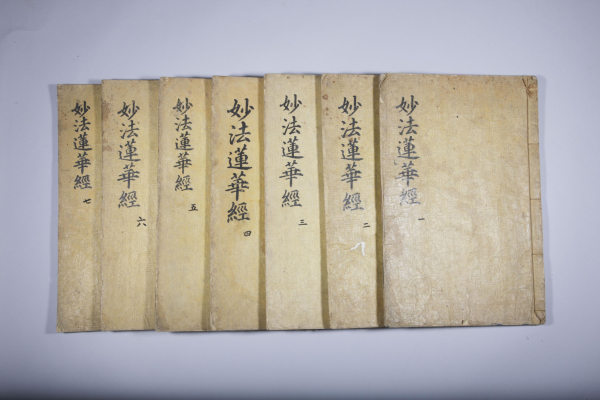 妙法蓮華經 一
妙法蓮華經 二
妙法蓮華經 三
妙法蓮華經 四
妙法蓮華經 五
妙法蓮華經 六
妙法蓮華經 七